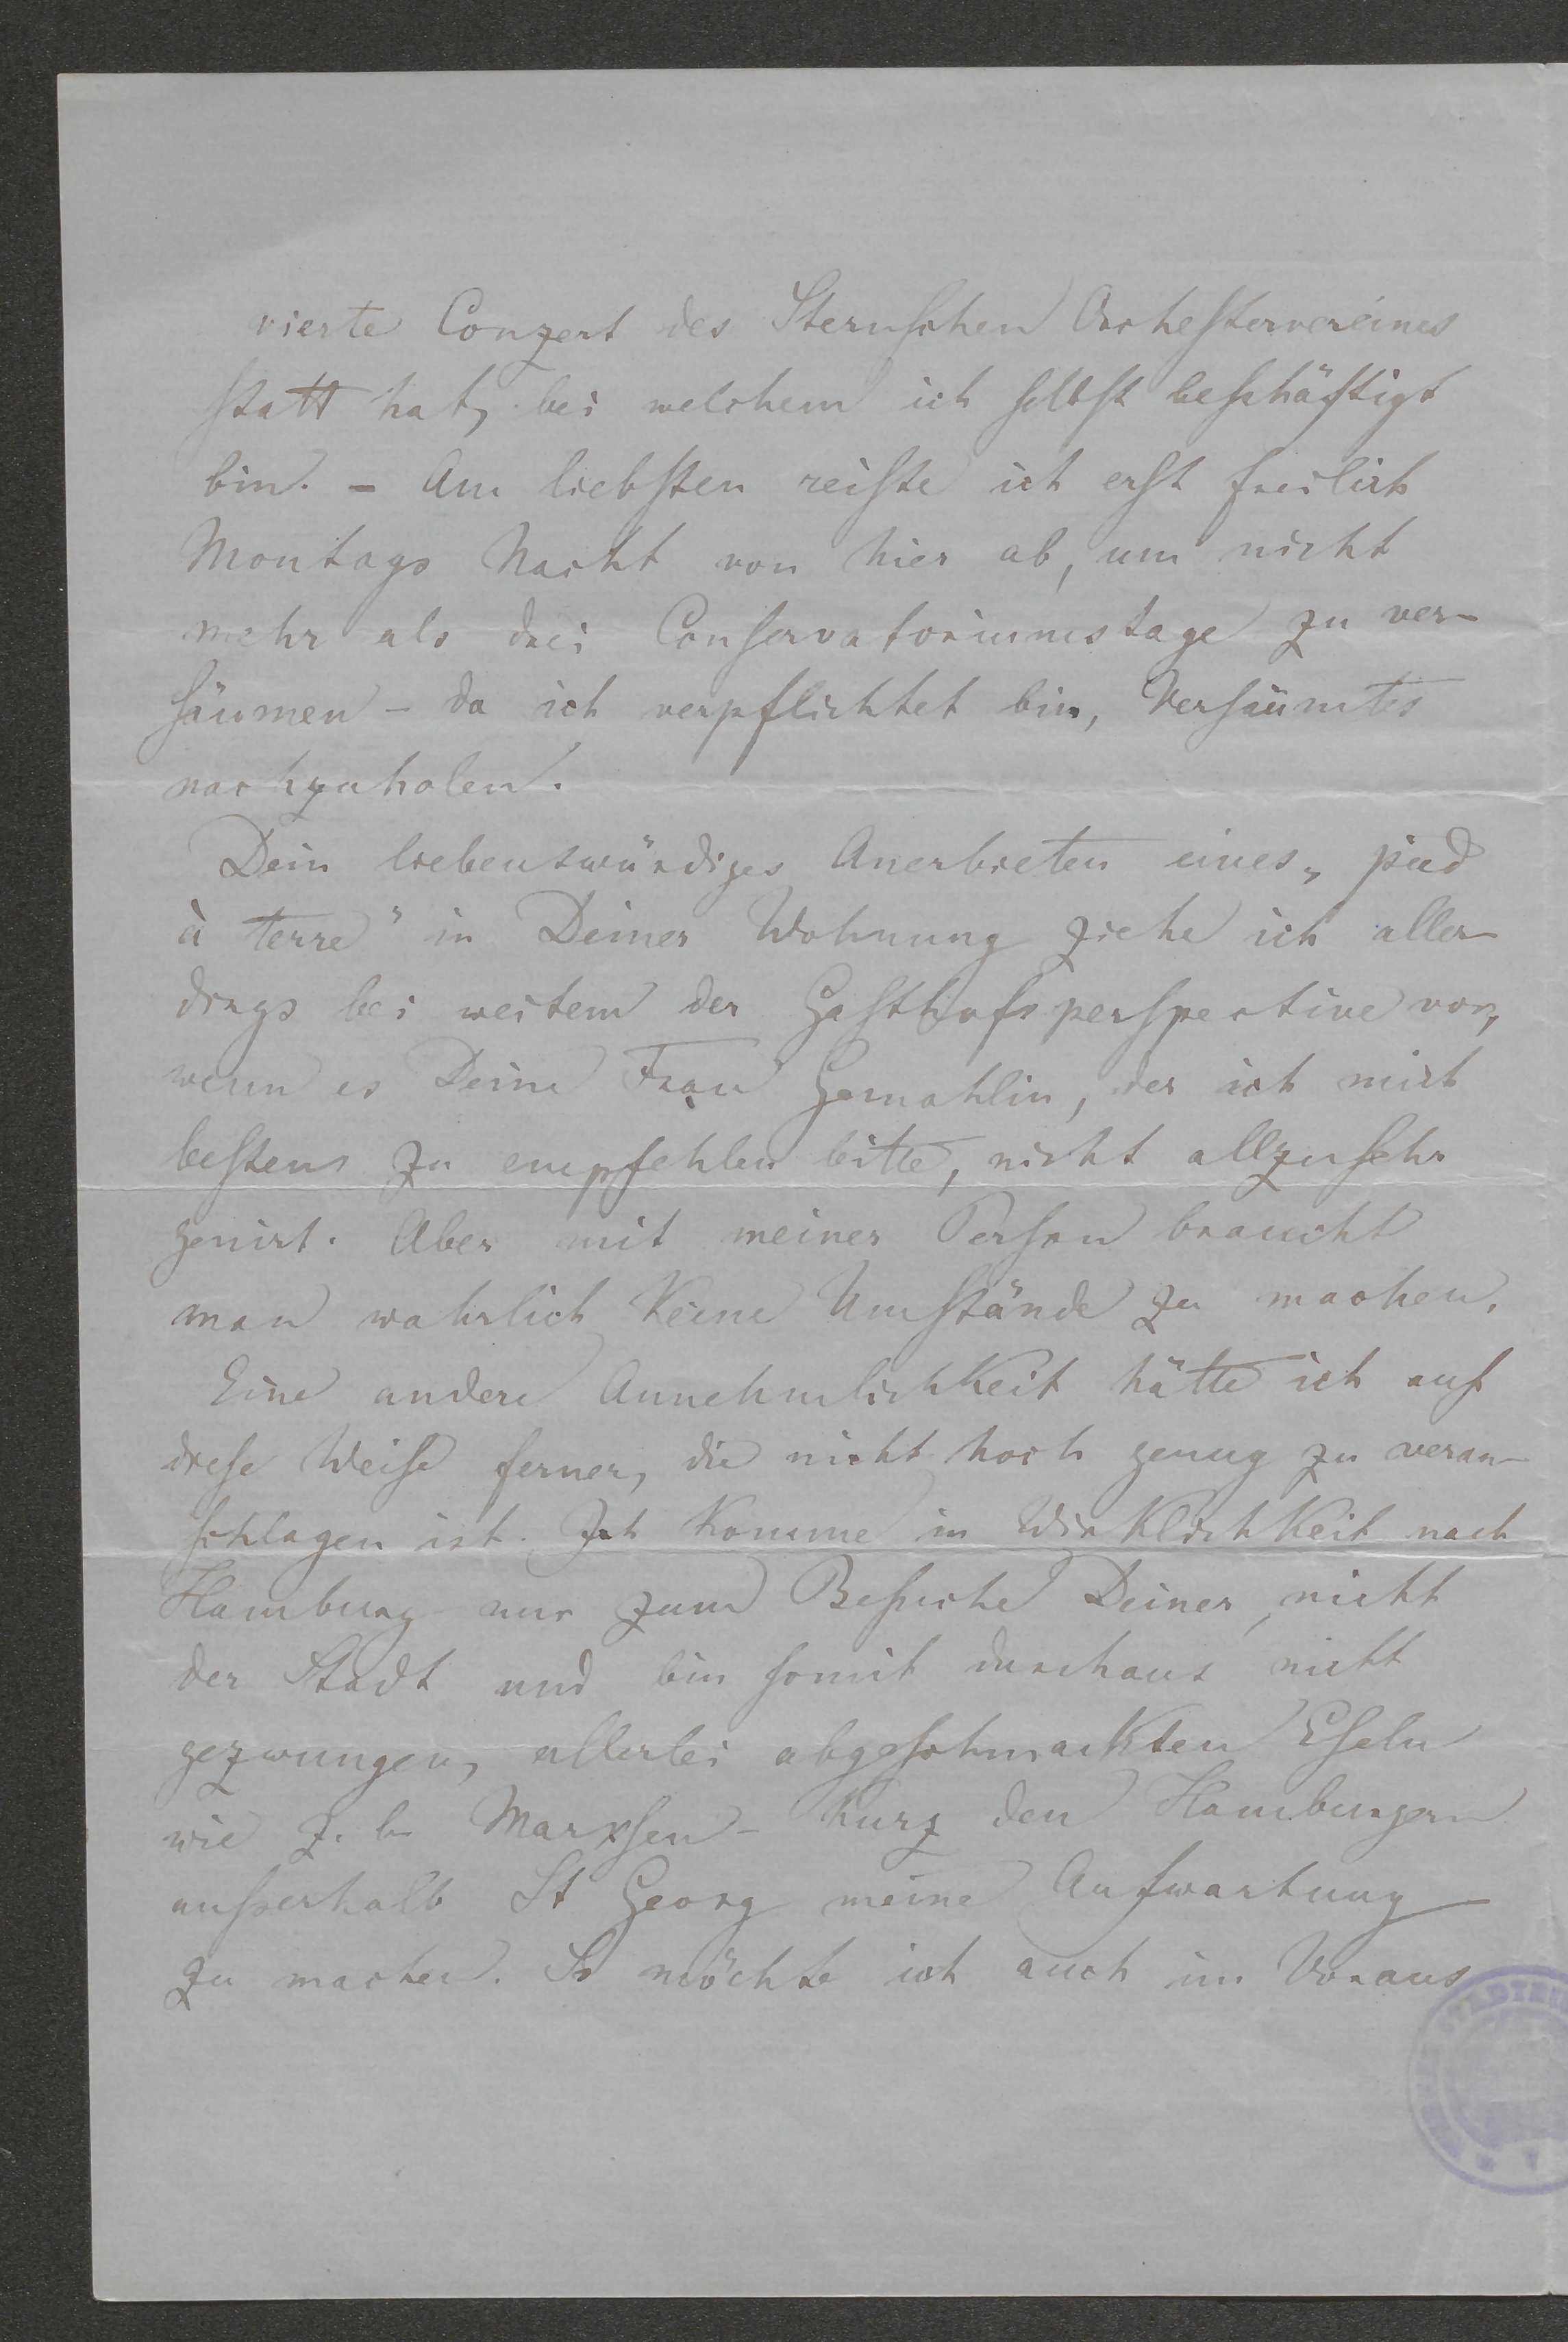 vierte Conzert des Sternschen Orchestervereines
statt hat, bei welchem ich selbst beschäftigt
bin. – Am liebsten reiste ich erst freilich
Montags Nacht von hier ab, um nicht
mehr als drei Conservatoriumstage zu ver-
säumen – da ich verpflichtet bin, Versäumtes
nachzuholen.
Dein liebenswürdiges Anerbieten eines „pied
à terre" in Deiner Wohnung ziehe ich aller-
dings bei weitem der Gasthofsperspective vor,
wenn es Deine Frau Gemahlin, der ich mich
bestens zu empfehlen bitte, nicht allzusehr
genirt. Aber mit meiner Person braucht
man wahrlich keine Umstände zu machen.
Eine andere Annehmlichkeit hätte ich auf
diese Weise ferner, die nicht hoch genug zu veran-
schlagen ist. Ich komme in Wirklichkeit nach
Hamburg nur zum Besuche Deiner, nicht
der Stadt und bin somit durchaus nicht
gezwungen, allerlei abgeschmackten Eseln
wie z. b. Marxsen – kurz den Hamburgern
außerhalb St Georg meine Aufwartung
zu machen. So möchte ich auch im Voraus